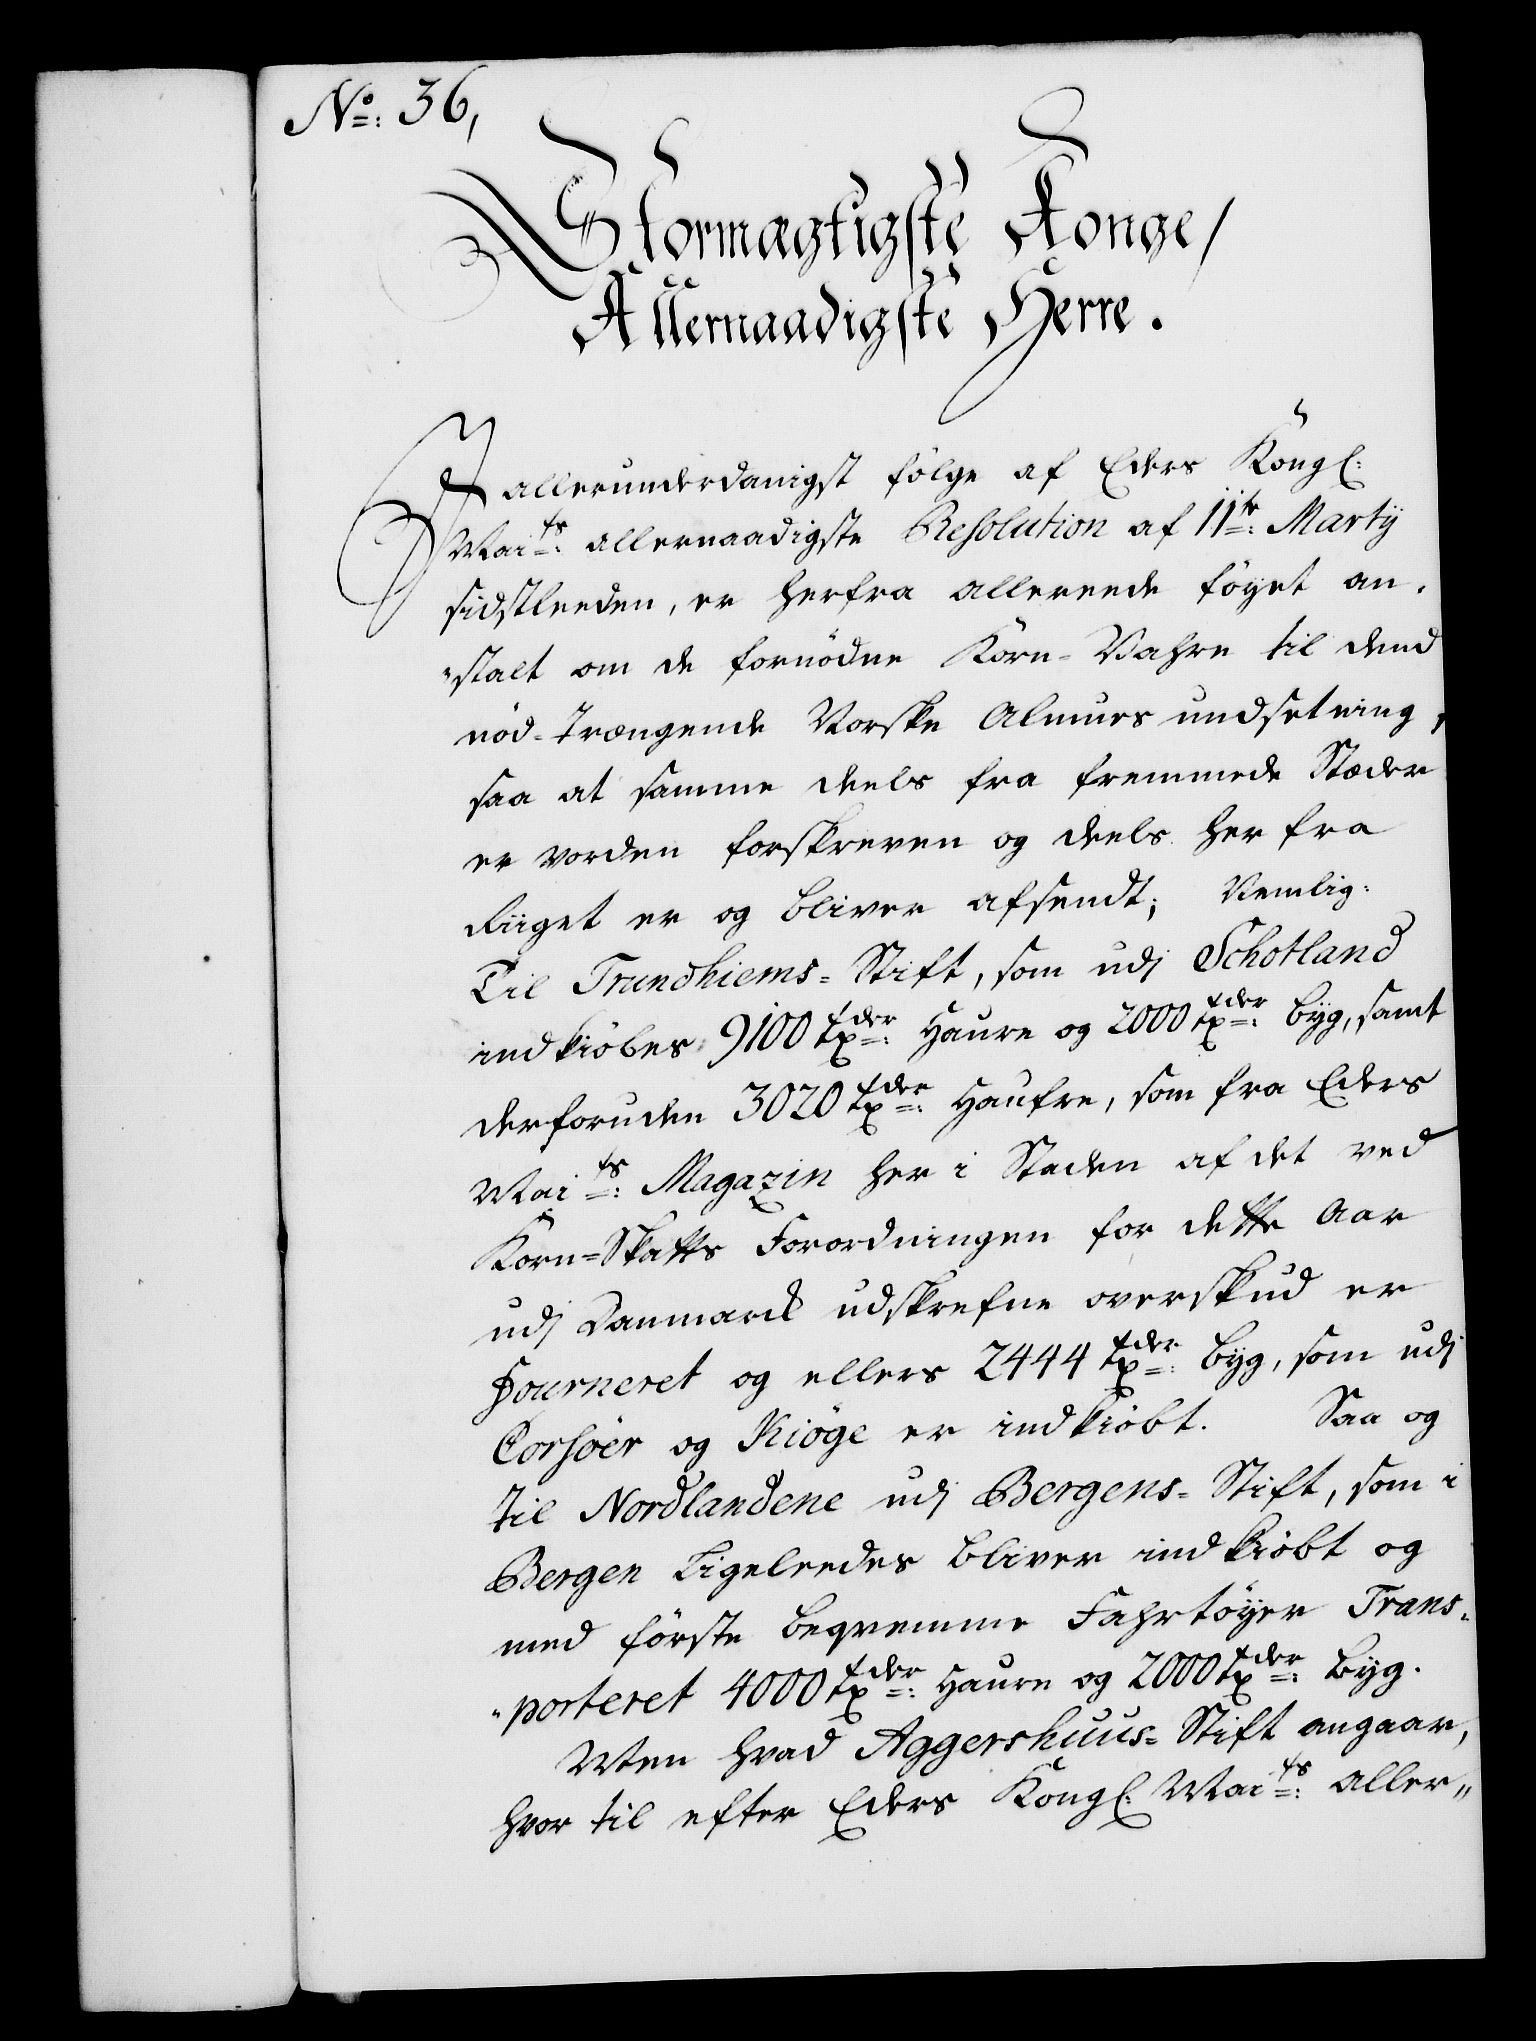 No: 36,
Stormægtigste Konge/
Allernaadigste Herre.
I allerunderdanigst følge af Eders Kongl:
Maits: allernaadigste Resolution af 11te: Martÿ
sidstleeden, er herfra allereede føyet an-
"stalt om de fornødne Korn-Vahre til dend
nød-Trængende Norske Almues undsetning,
saa at samme deels fra fremmede Stæder
er vorden forskreven og deels her fra
Riiget er og bliver afsendt; Nemlig:
Til Trundhiems-Stift, som udj Schotland
indkiøbes 9100 tder: Haure og 2000 tder: byg, samt
derforuden 3020 tder: Haufre, som fra Eders
Maits: Magazin her i Staden af det ved
Korn-Skatts Forordningen for dette Aar
udj Danmark udskrefne overskud er
Fourneret og ellers 2444 tder: byg, som udj
Corsøer og Kiøge er indkiøbt. Saa og
til Nordlandene udj Bergens-Stift, som i
Bergen Ligeleedes bliver indkiøbt og
med første beqvemme Fahrtøyer Trans-
"porteret 4000 tder: Haure og 2000 tder: byg.
Men hvad Aggershuus-Stift angaar,
hvor til efter Eders Kongl: Maits: aller"